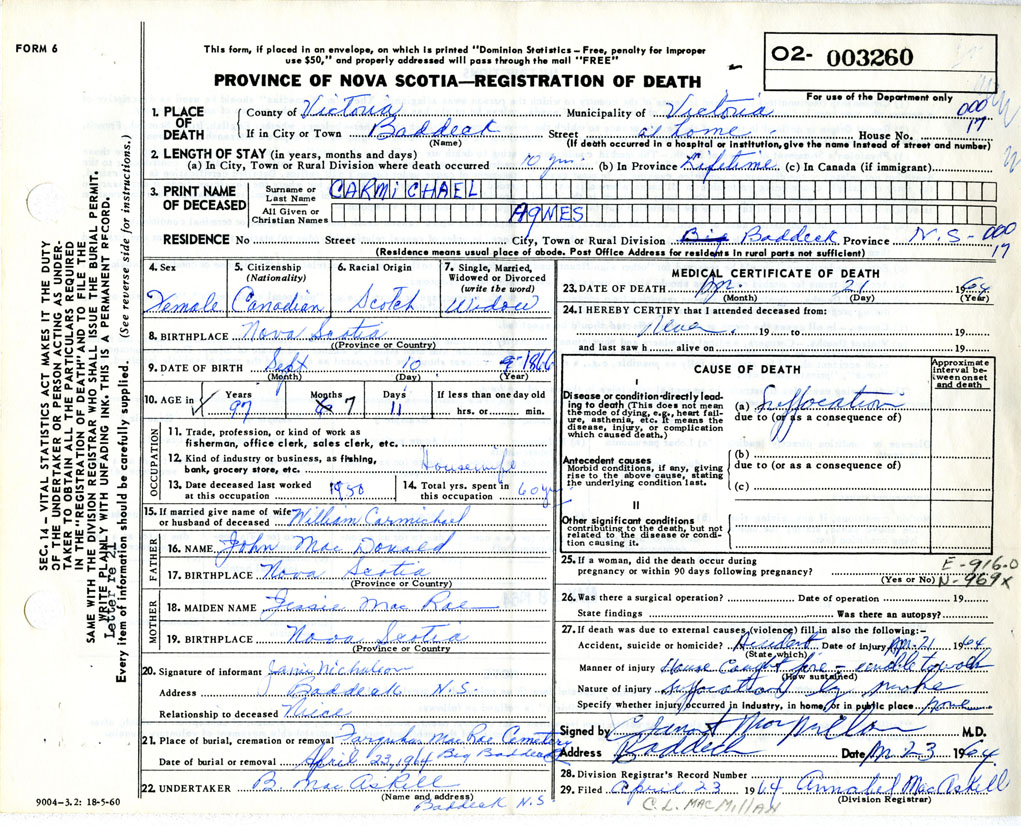 FORM 6
This form, if placed in an envelope, on which is printed "Dominion Statistics – Free, penalty for improper
use $50," and properly addressed will pass through the mail "FREE"
PROVINCE OF NOVA SCOTIA—REGISTRATION OF DEATH
O2- 003260
For use of the Department only
000
17
1. PLACE OF DEATH
County of Victoria Municipality of Victoria
If in City or Town Baddeck Street at home House No.
(Name) (If death occurred in a hospital or institution, give the name instead of street and number)
2. LENGTH OF STAY (in years, months and days)
(a) In City, Town or Rural Division where death occurred 70 yrs. (b) In Province Lifetime (c) In Canada (if immigrant)
3. PRINT NAME OF DECEASED
Surname or Last Name CARMICHAEL
All Given or Christian Names AGNES
RESIDENCE No Street City, Town or Rural Division Big Baddeck Province N.S. 000
17
(Residence means usual place of abode. Post Office Address for residents in rural parts not sufficient)
4. Sex Female
5. Citizenship (Nationality) Canadian
6. Racial Origin Scotch
7. Single, Married, Widowed or Divorced (write the word) Widow
8. BIRTHPLACE Nova Scotia
(Province or Country)
9. DATE OF BIRTH Sept 10 1866
(Month) (Day) (Year)
10. AGE in Years Months Days If less than one day old
97 8 7 11 hrs. or min.
OCCUPATION
11. Trade, profession, or kind of work as
fisherman, office clerk, sales clerk, etc.
12. Kind of industry or business, as fishing,
bank, grocery store, etc. Housewife
13. Date deceased last worked at this occupation 1950
14. Total yrs. spent in this occupation 60 yrs
15. If married give name of wife or husband of deceased William Carmichael
FATHER
16. NAME John Mac Donald
17. BIRTHPLACE Nova Scotia
(Province or Country)
MOTHER
18. MAIDEN NAME Jessie Mac Rae
19. BIRTHPLACE Nova Scotia
(Province or Country)
20. Signature of informant Nicholson
Address Baddeck N.S.
Relationship to deceased Niece
21. Place of burial, cremation or removal Farquhar Mac Rae Cemetery
Big Baddeck
Date of burial or removal April 23, 1964
22. UNDERTAKER B. Mac Askill
(Name and address)
Baddeck N.S
9004-3.2: 18-5-60
MEDICAL CERTIFICATE OF DEATH
23. DATE OF DEATH Apr. 21 1964
(Month) (Day) (Year)
24. I HEREBY CERTIFY that I attended deceased from:
Never 19 to 19
and last saw h alive on 19
CAUSE OF DEATH
Approximate interval between onset and death
I
Disease or condition directly leading to death (This does not mean
the mode of dying, e.g., heart failure, asthenia, etc. It means the
disease, injury, or complication
which caused death.)
(a) Suffocation
due to (or as a consequence of)
Antecedent causes
Morbid conditions, if any, giving
rise to the above cause, stating
the underlying condition last.
(b)
due to (or as a consequence of)
(c)
II
Other significant conditions
contributing to the death, but not
related to the disease or condition causing it.
25. If a woman, did the death occur during
pregnancy or within 90 days following pregnancy?
(Yes or No)
E-916.0
N-969x
26. Was there a surgical operation? Date of operation 19
State findings Was there an autopsy?
27. If death was due to external causes (violence) fill in also the following:–
Accident, suicide or homicide? Accident Date of injury Apr. 21 1964
(State which)
Manner of injury House Caught fire –
(How sustained)
Nature of injury suffocation by smoke
Specify whether injury occurred in industry, in home, or in public place home
Signed by Mac Millan M.D.
Address Baddeck Date Apr. 23 1964
28. Division Registrar's Record Number
29. Filed April 23 1964 Annabel MacAskill
(Division Registrar)
C. L. MACMILLAN
SEC. 14 – VITAL STATISTICS ACT MAKES IT THE DUTY
OF THE UNDERTAKER OR PERSON ACTING AS UNDER-
TAKER TO OBTAIN ALL THE PARTICULARS REQUIRED
IN THE "REGISTRATION OF DEATH" AND TO FILE THE
SAME WITH THE DIVISION REGISTRAR WHO SHALL ISSUE THE BURIAL PERMIT.
WRITE PLAINLY WITH UNFADING INK. THIS IS A PERMANENT RECORD.
Letter re 21
Every item of information should be carefully supplied. (See reverse side for instructions.)